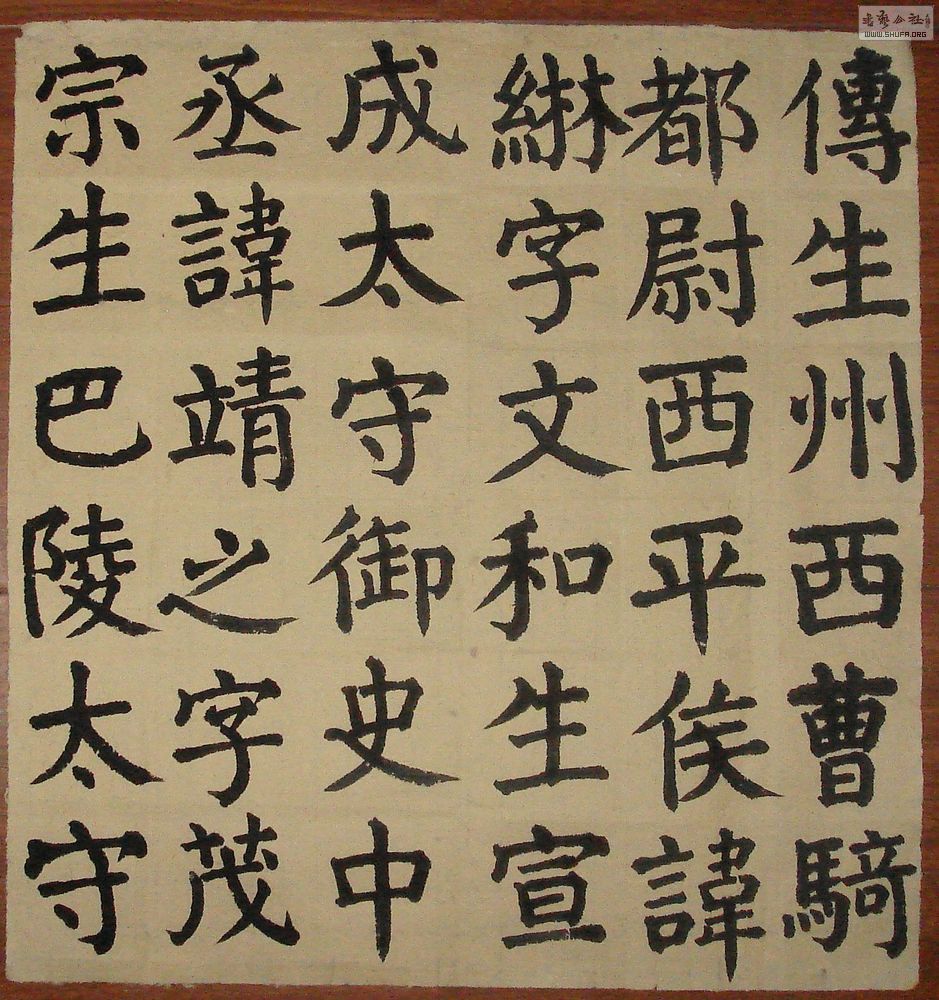 傳生州西曹騎
都尉西平侯諱
綝字文和生宣
成太守御史中
丞諱靖之字茂
宗生巴陵太守
書藝公社
WWW.SHUFA.ORG